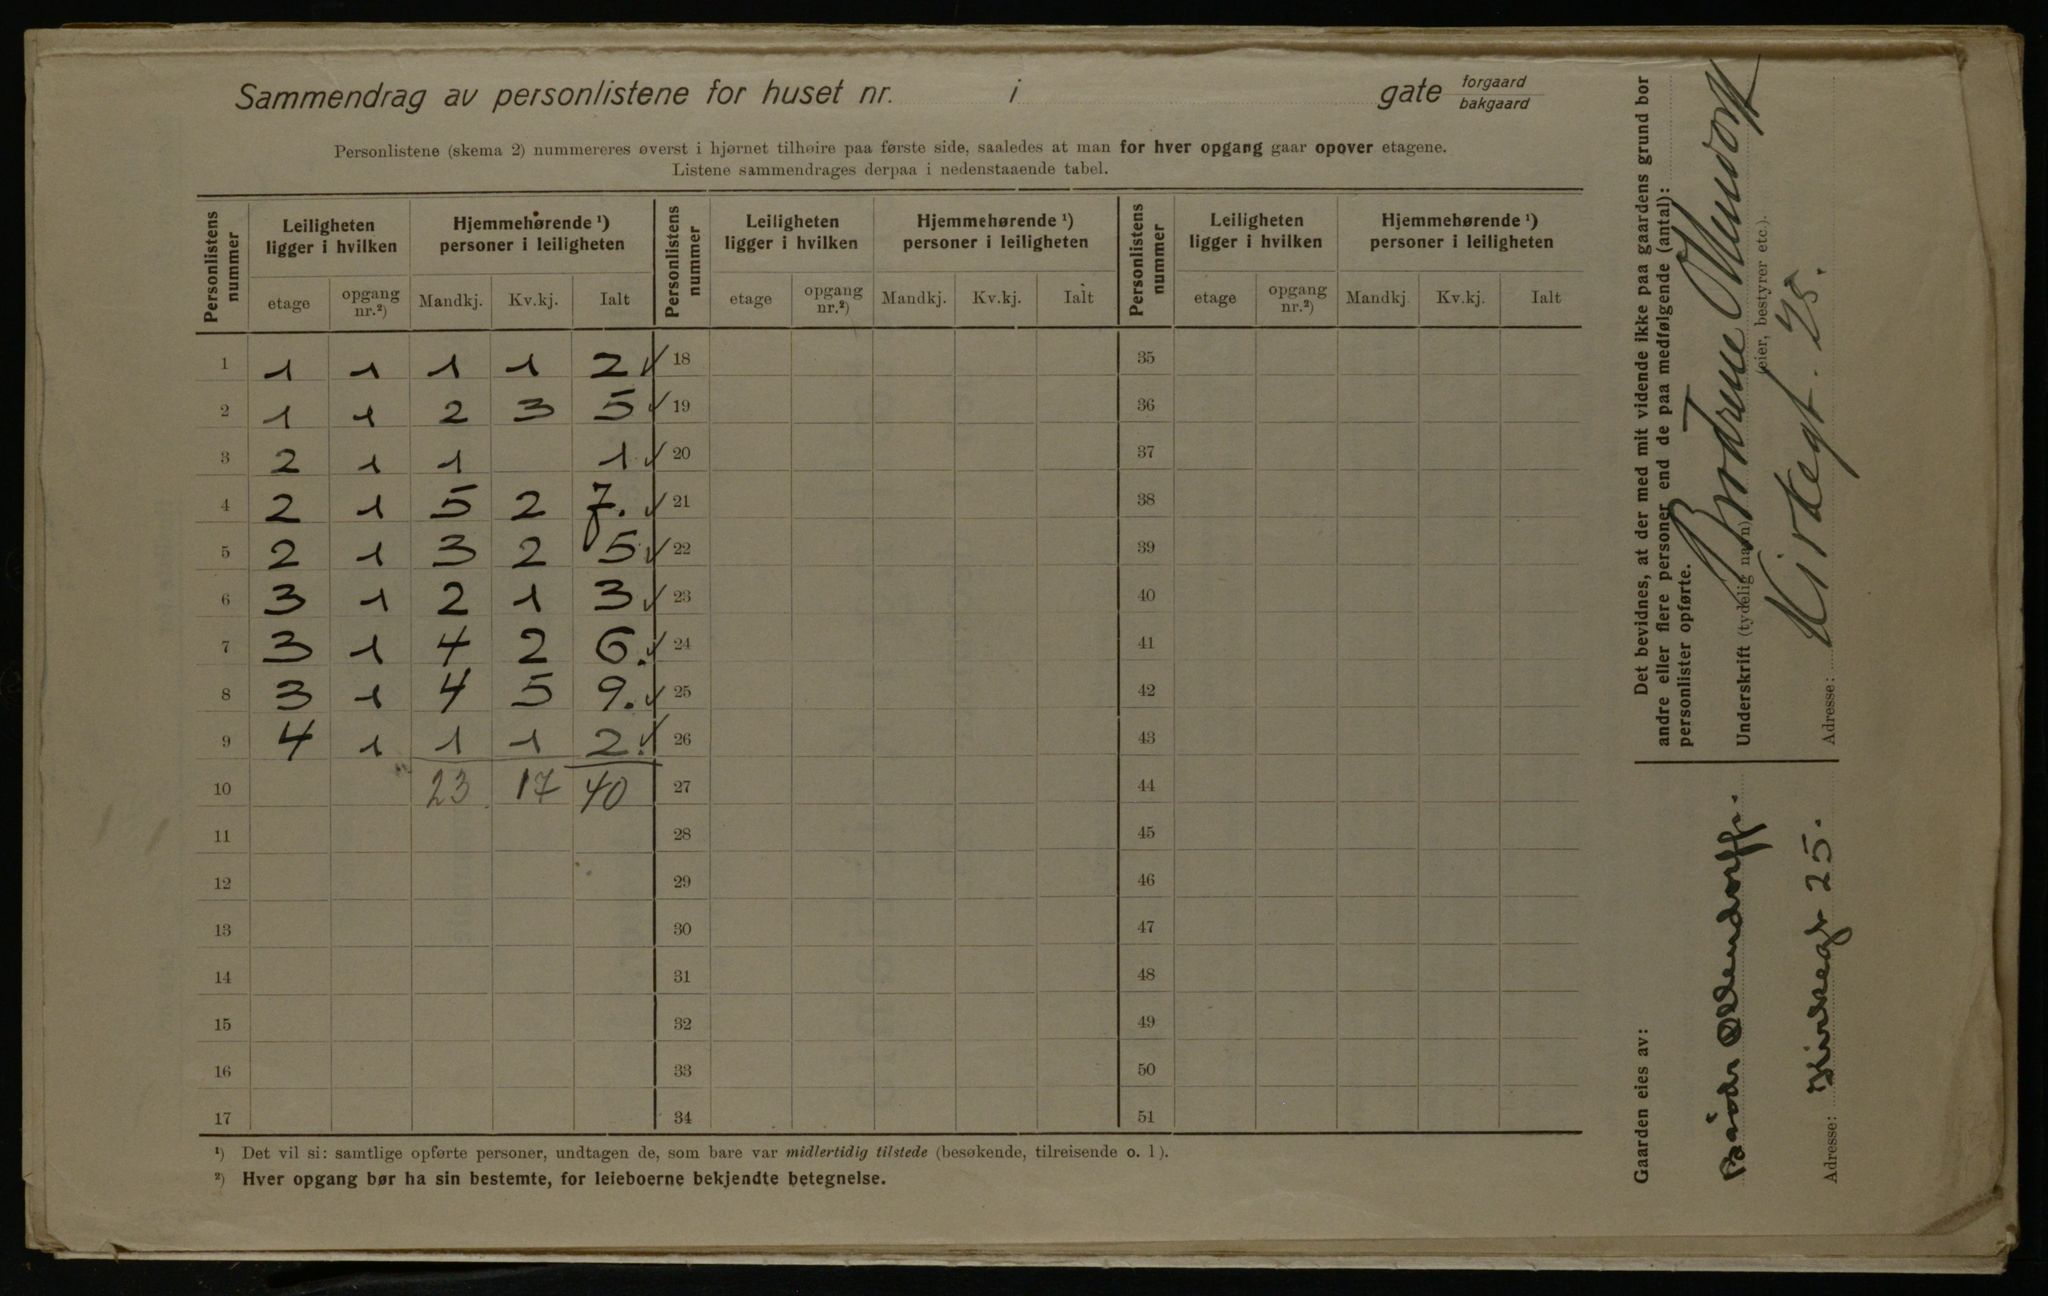 Sammendrag av personlistene for huset nr. i gate forgaard bakgaard
Personlistene (skema 2) nummereres øverst i hjørnet tilhøire paa første side, saaledes at man for hver opgang gaar opover etagene.
Listene sammendrages derpaa i nedenstaaende tabel.
Personlistens nummer Leiligheten ligger i hvilken Hjemmehørende ¹) personer i leiligheten Personlistens nummer Leiligheten ligger i hvilken Hjemmehørende ¹) personer i leiligheten Personlistens nummer Leiligheten ligger i hvilken Hjemmehørende ¹) personer i leiligheten
etage opgang nr.²) Mandkj. Kv.kj. Ialt etage opgang nr.²) Mandkj. Kv.kj. Ialt etage opgang nr.²) Mandkj. Kv.kj. Ialt
1 1 1 1 1 2 18 35
2 1 1 2 3 5 19 36
3 2 1 1 1 20 37
4 2 1 5 2 7. 21 38
5 2 1 3 2 5 22 39
6 3 1 2 1 3 23 40
7 3 1 4 2 6. 24 41
8 3 1 4 5 9. 25 42
9 4 1 1 1 2. 26 43
10 23 17 40 27 44
11 28 45
12 29 46
13 30 47
14 31 48
15 32 49
16 33 50
17 34 51
¹) Det vil si: samtlige opførte personer, undtagen de, som bare var midlertidig tilstede (besøkende, tilreisende o. l).
²) Hver opgang bør ha sin bestemte, for leieboerne bekjendte betegnelse.
Det bevidnes, at der med mit vidende ikke paa gaardens grund bor
andre eller flere personer end de paa medfølgende (antal):
personlister opførte.
Brødrene Ollendorff
Underskrift (tydelig navn) (eier, bestyrer etc.).
Kirkegt. 25.
Adresse:
Gaarden eies av:
Brødr Ollendorff.
Kirkegt 25.
Adresse: